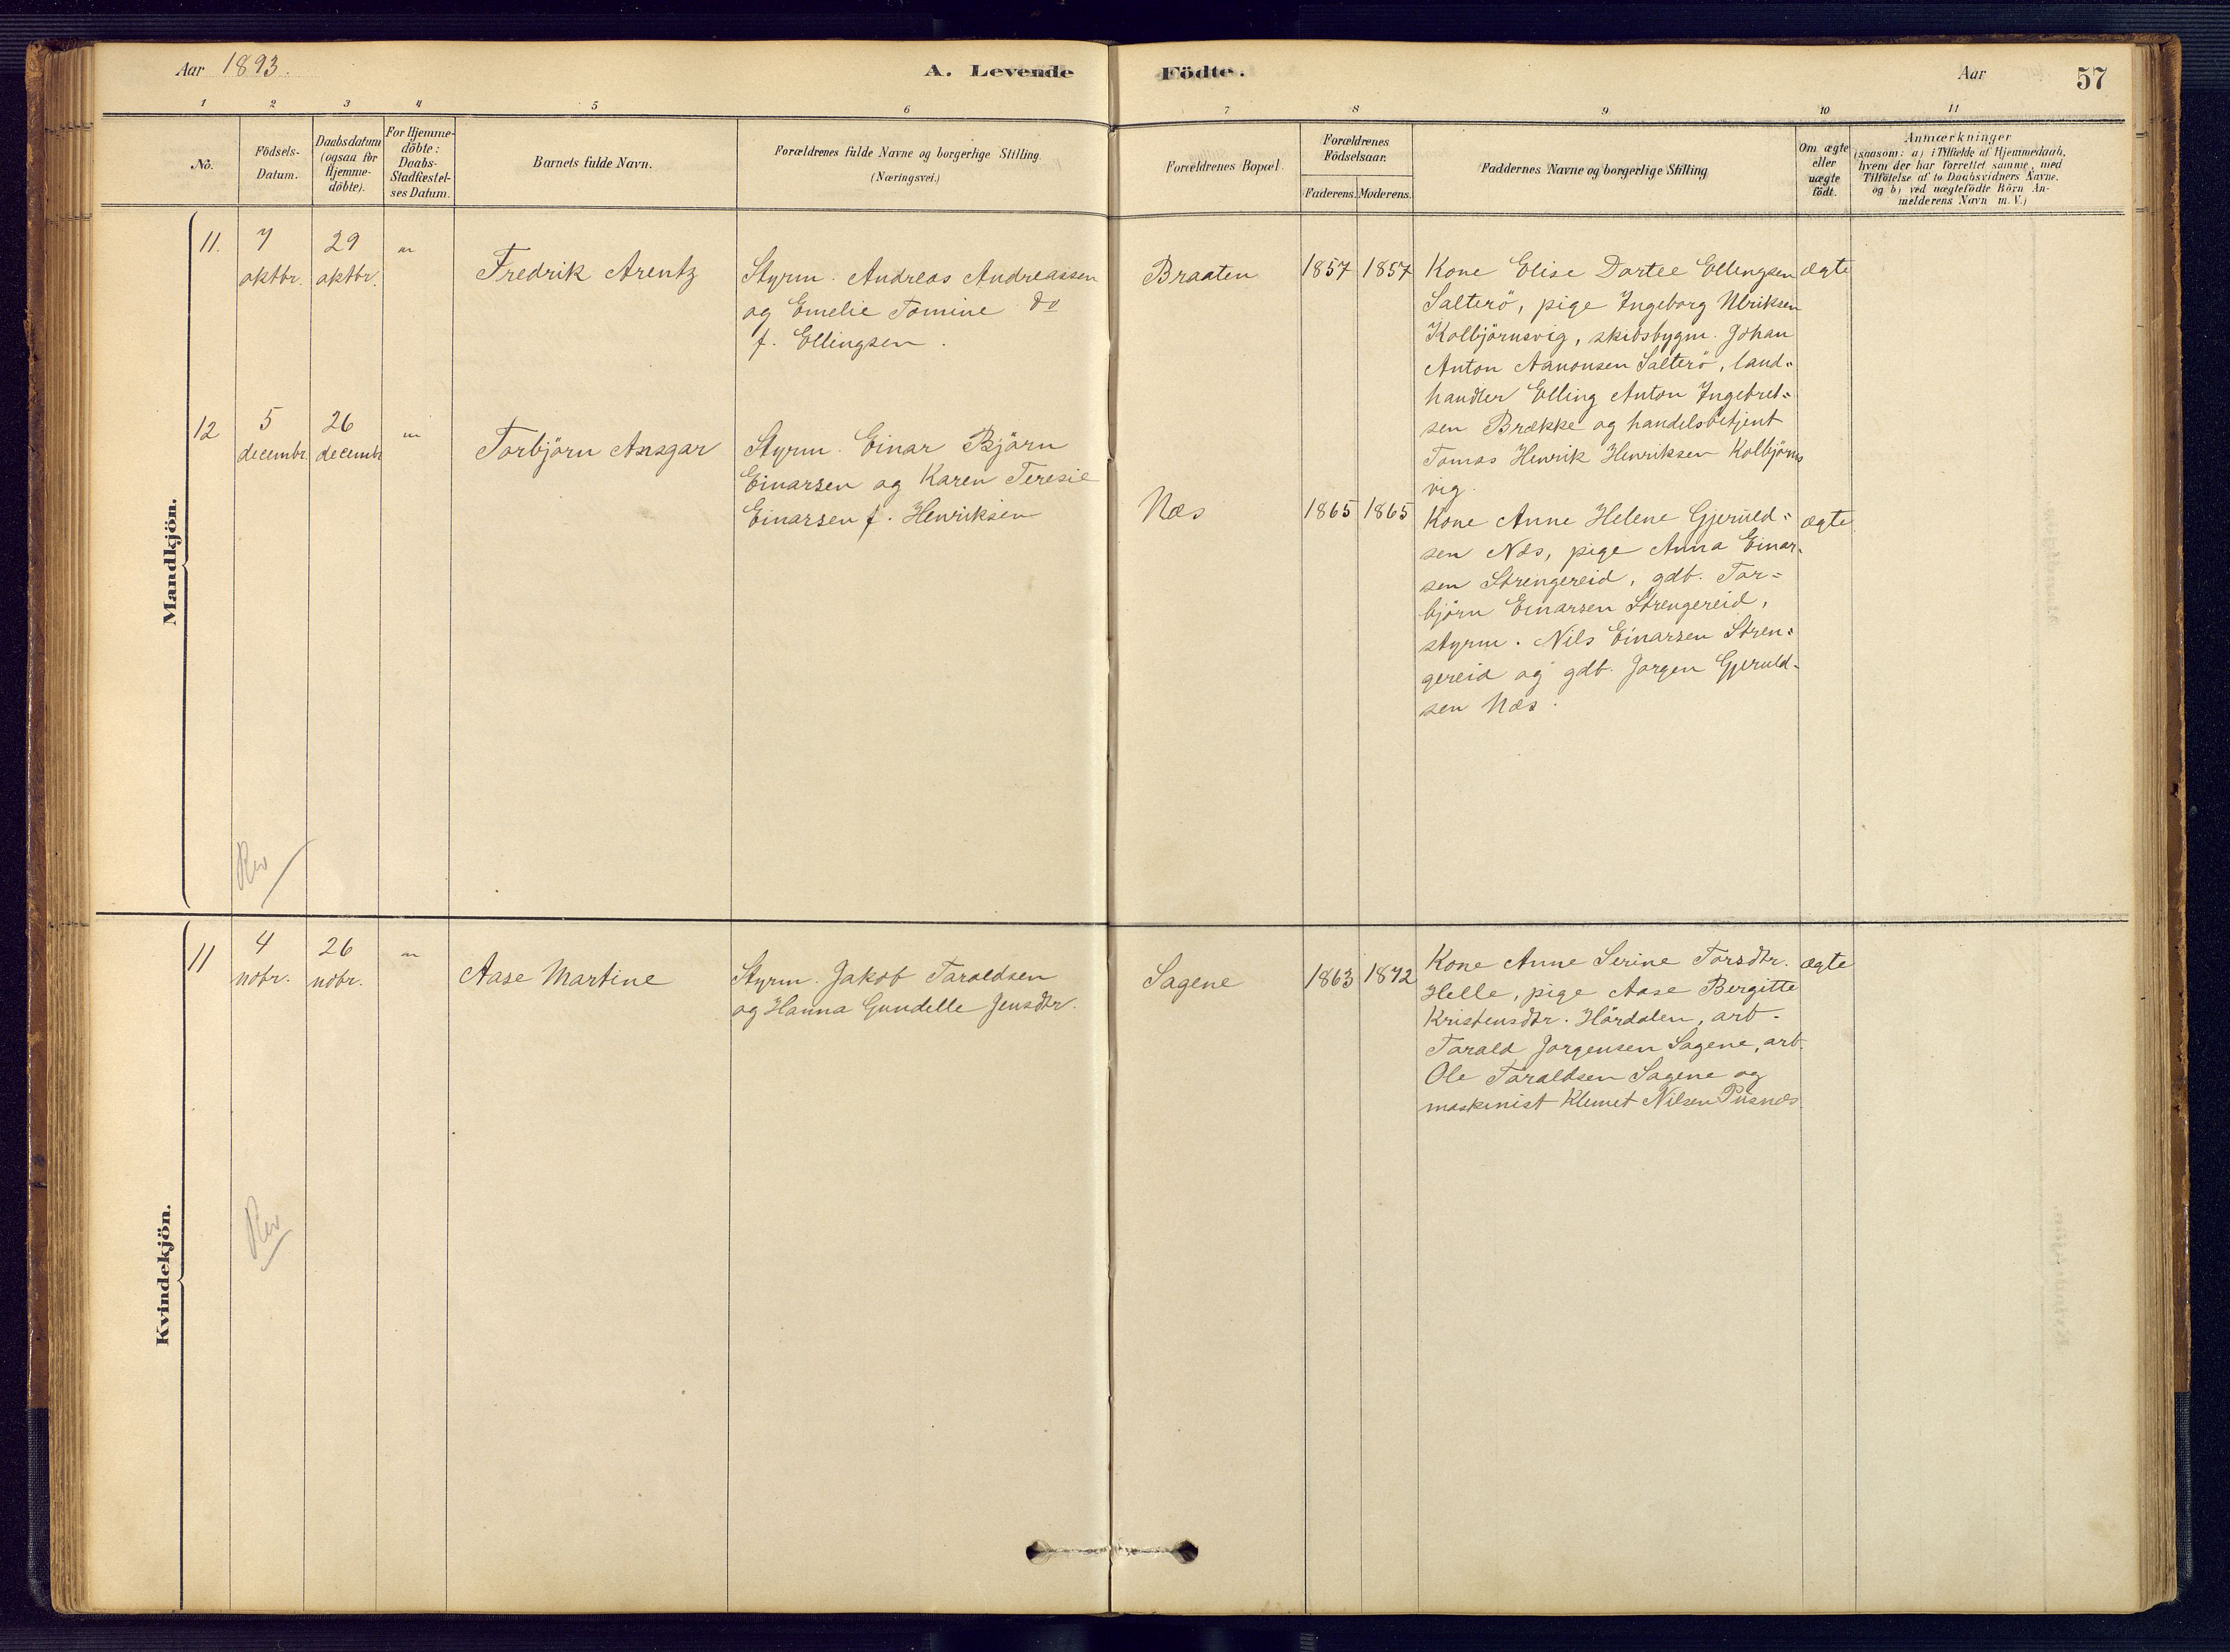 Aar 1893.
A. Levende Födte.
Aar
57
1 2 3 4 5 6 7 8 9 10 11
No.
Födsels-
Datum.
Daabsdatum
(ogsaa for
Hjemme-
döbte).
For Hjemme-
döbte:
Daabs-
Stadfæstel-
ses Datum.
Barnets fulde Navn.
Forældrenes fulde Navne og borgerlige Stilling
(Næringsvei.)
Forældrenes Bopæl.
Forældrenes
Födselsaar.
Faderens. Moderens.
Faddernes Navne og borgerlige Stilling
Om ægte
eller
uægte
födt.
Anmærkninger
(saasom: a) i Tilfælde af Hjemmedaab,
hvem der har forrettet samme, med
Tilföielse af to Daabsvidners Navne.
og b) ved uægtefödte Börn An-
melderens Navn m. V.)
Mandkjön.
11.
7
oktbr.
29
oktbr.
"
Fredrik Arentz
Styrm. Andreas Andreassen
og Emelie Tomine do
f. Ellingsen.
Braaten
1857 1857
Kone Elise Dortee Ellingsen
Salterö, pige Ingeborg Ulriksen
Kolbjörnsvig, skibsbygm. Johan
Anton Aanonsen Salterö, land-
handler Elling Anton Ingebret-
sen Brække og handelsbetjent
Tomas Henrik Henriksen Kolbjörns
vig.
ægte
12
5
decembr
26
decembr
"
Torbjörn Ansgar
Styrm. Einar Björn
Einarsen og Karen Teresie
Einarsen f. Henriksen
Næs
1865 1865
Kone Anne Helene Gjeruld-
sen Næs, pige Anna Einar-
sen Strengereid, gdb. Tor-
björn Einarsen Strengereid,
styrm. Nils Einarsen Stren-
gereid og gdb. Jorgen Gjeruld-
sen Næs.
ægte
Rev
Kvindekjön.
11
4
nobr.
26
nobr.
"
Aase Martine
Styrm. Jakob Taraldsen
og Hanna Gundelle Jensdtr.
Sagene
1863 1872
Kone Anne Serine Torsdtr.
Helle, pige Aase Bergitte
Kristensdtr. Hördalen, arb.
Tarald Jorgensen Sagene, arb.
Ole Taraldsen Sagene og
maskinist Klemet Nilsen Pusnes
ægte
Rev